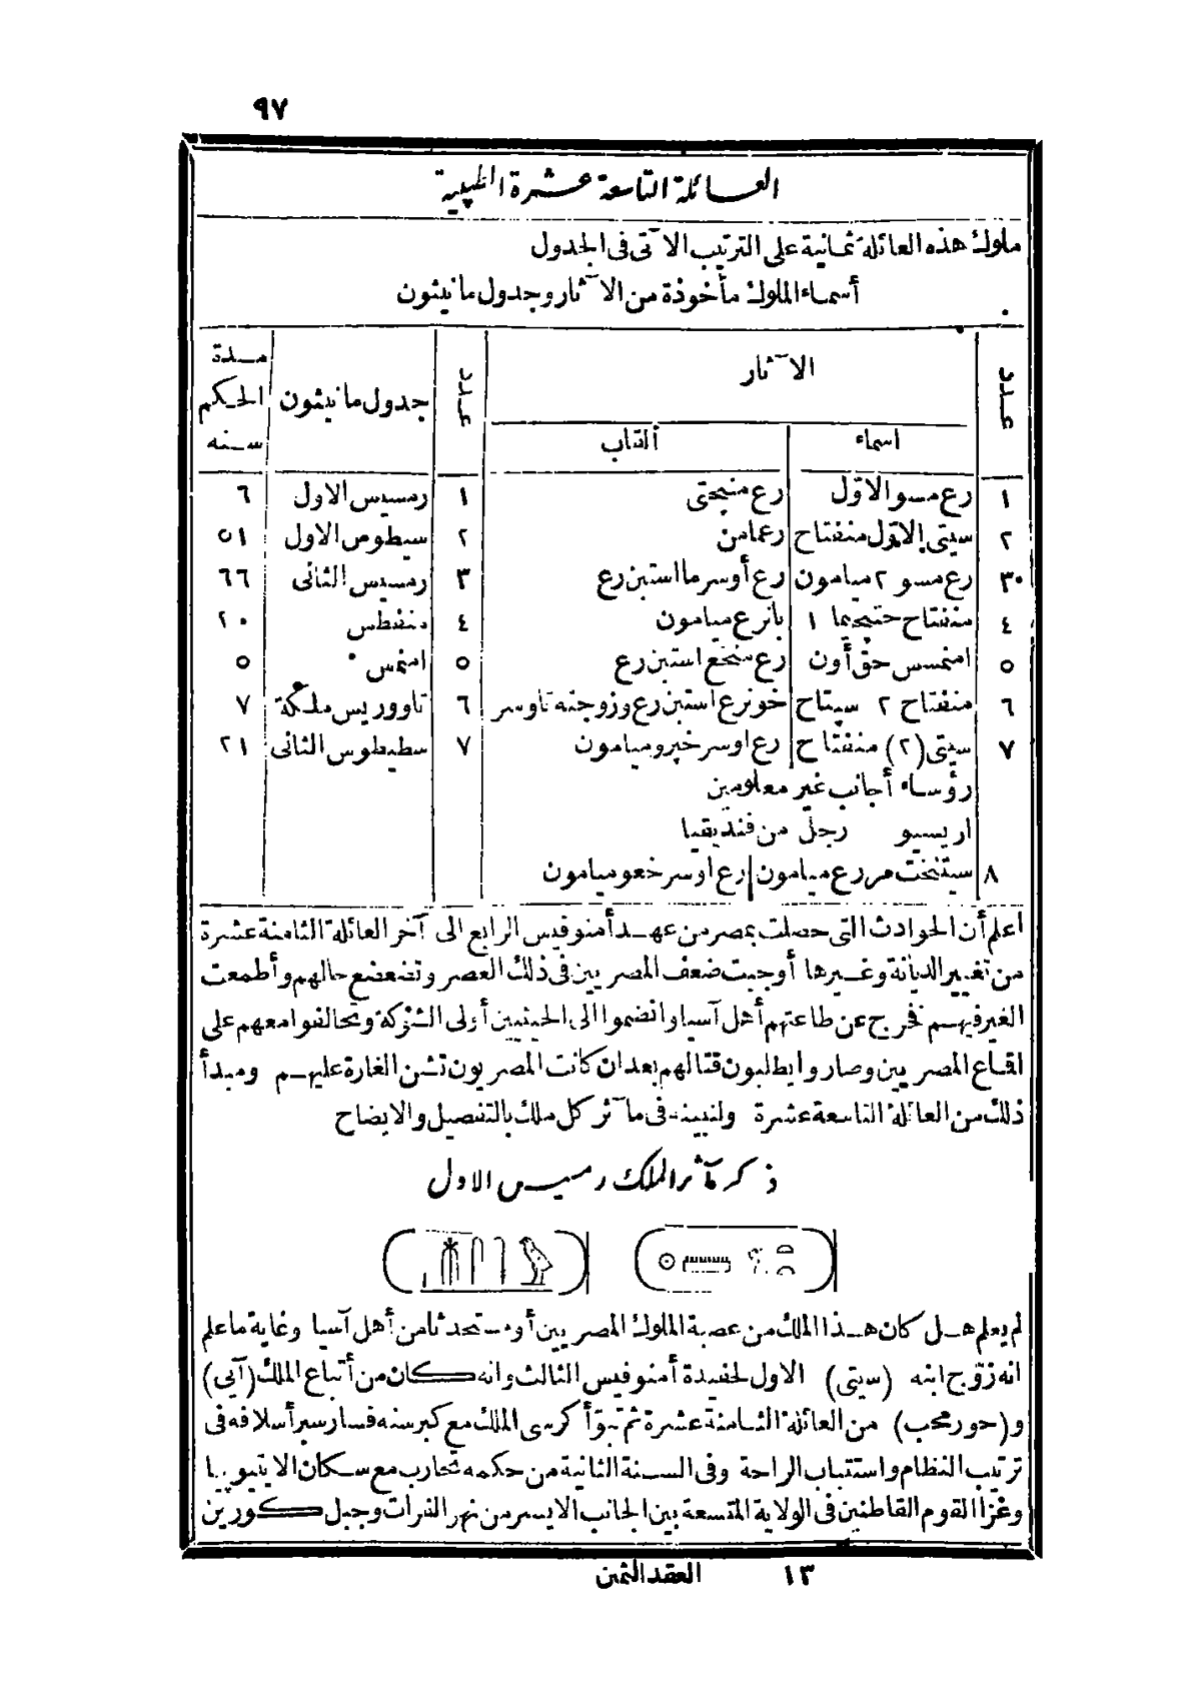 ٩٧
العائلة التاسعة عشرة الطيبية
ملوك هذه العائلة ثمانية على الترتيب الآتى فى الجدول
أسماء الملوك مأخوذة من الآثار وجدول مانيثون
عدد الآثار عدد جدول مانيثون مدة الحكم سنه
اسماء ألقاب
١ رع مسو الاوّل رع منبحتى ١ رمسيس الاول ٦
٢ سيتى الاوّل منفتاح رعمامن ٢ سيطوس الاول ٥١
٣ رع مسو ٢ ميامون رع أوسرما استبن رع ٣ رمسيس الثانى ٦٦
٤ منفتاح حتبحيما ١ بانرع ميامون ٤ منفطس ٢٠
٥ امنمسس حق أون رع سنخع استبن رع ٥ امنمس ٥
٦ منفتاح ٢ سپتاح خونرع استبن رع وزوجته تاوسر ٦ تاووريس ملكة ٧
٧ سيتى (٢) منفتاح رع اوسر خپرو ميامون ٧ سطيطوس الثانى ٢١
رؤساء أجانب غير معلومين
اريسيو رجل من فنديقيا
٨ سيتنخت مررع ميامون رع اوسر خعو ميامون
اعلم أن الحوادث التى حصلت بمصر من عهد أمنوفيس الرابع الى آخر العائلة الثامنة عشرة
من تغيير الديانة وغيرها أوجبت ضعف المصريين فى ذلك العصر وتضعضع حالهم وأطمعت
الغير فيهم فخرج عن طاعتهم أهل آسيا وانضموا الى الحيثيين أولى الشوكة وتحالفوا معهم على
ايقاع المصريين وصاروا يطلبون قتالهم بعد ان كانت المصريون تشن الغارة عليهم ومبدأ
ذلك من العائلة التاسعة عشرة ولنبينه فى مآثر كل ملك بالتفصيل والايضاح
ذكر مآثر الملك رمسيس الاول
لم يعلم هل كان هذا الملك من عصبة الملوك المصريين أو مستحدثا من أهل آسيا وغاية ما علم
انه زوّج ابنه (سيتى) الاول لحفيدة أمنوفيس الثالث وانه كان من أتباع الملك (آيى)
و(حورمحب) من العائلة الثامنة عشرة ثم تبوّأ كرسى الملك مع كبر سنه فسار سير أسلافه فى
ترتيب النظام واستتباب الراحة وفى السنة الثانية من حكمه تحارب مع سكان الايتيوپيا
وغزا القوم القاطنين فى الولاية المتسعة بين الجانب الايسر من نهر الفرات وجبل كورين
١٣ العقد الثمين